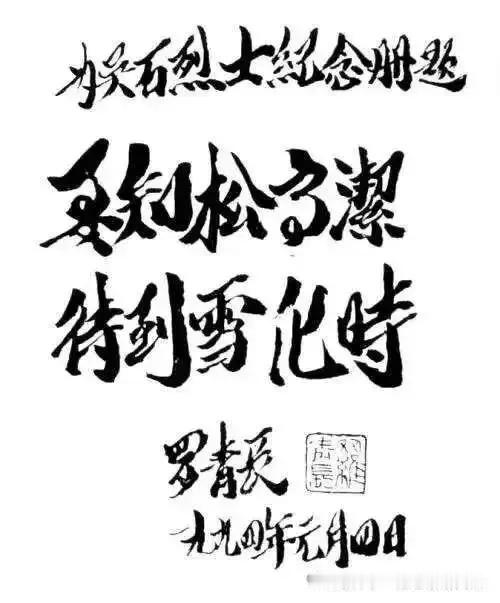 为吴石烈士紀念册题
要知松高潔
待到雪化時
罗青長
羅青長
一九九四年元月四日